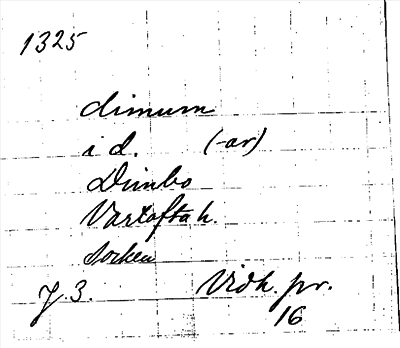 1325
dimum
i d. (-ar)
Dimbo
Vartofta h.
socken
J. 3. Vidh. pr.
16